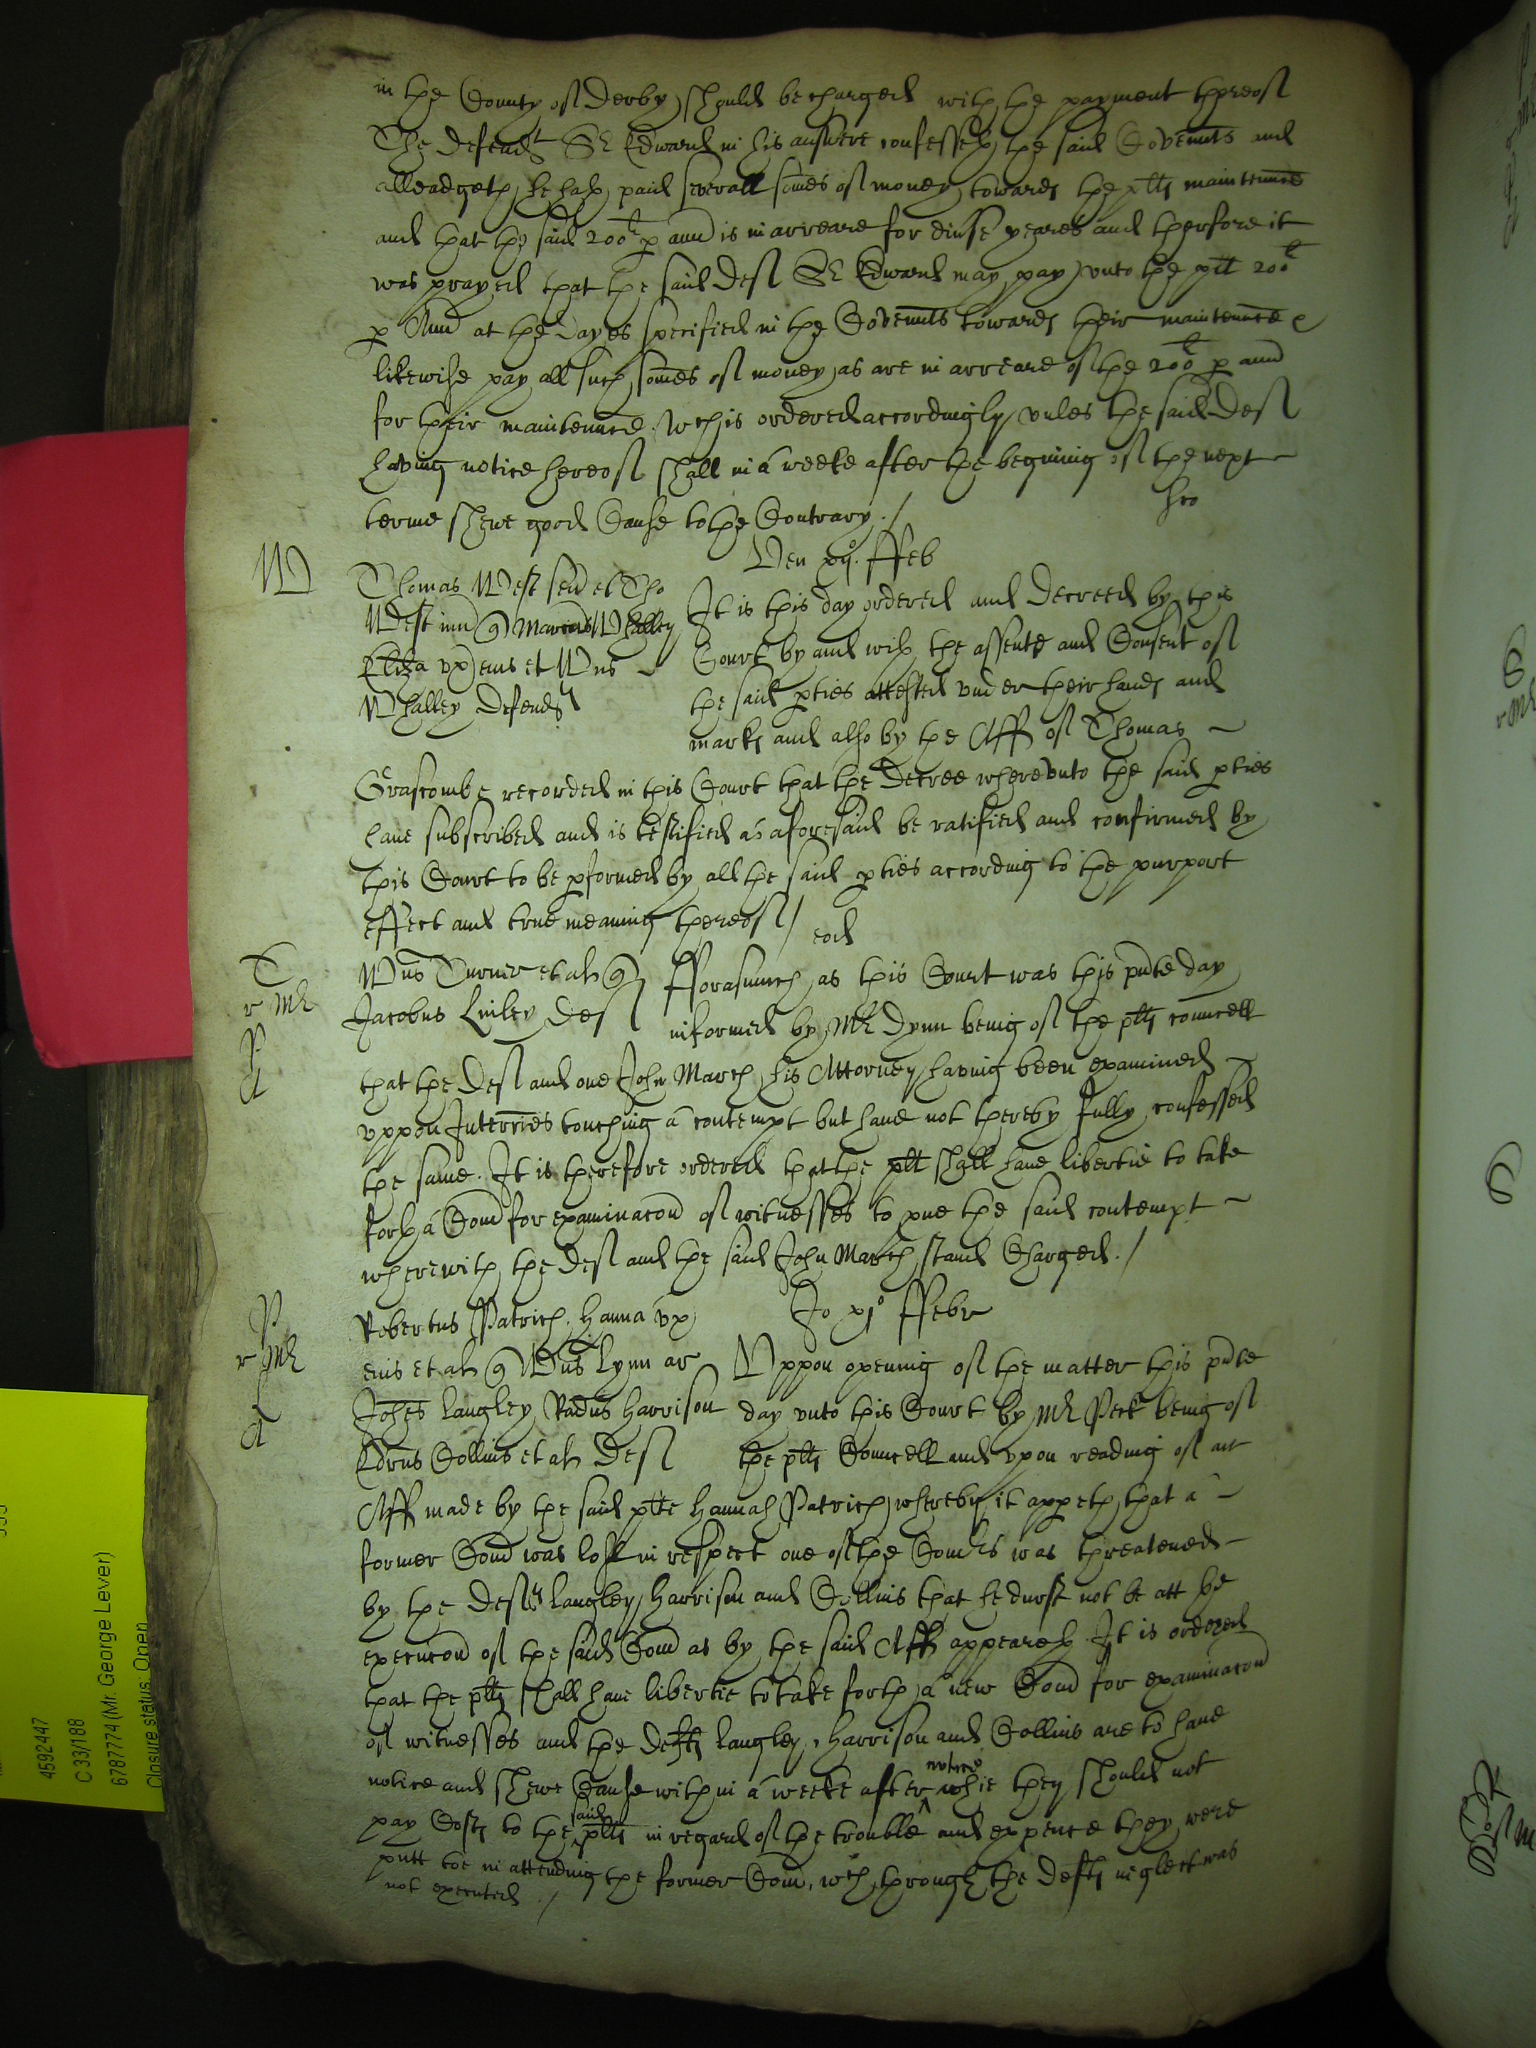 in the County of Derby should be charged with the payment thereof
The defendt Sr Edward in his answere confesseth the said Covennts and
alleadgeth he hath paid severall somes of money towards the plts maintennce
and that the said 200l p ann is in arreare for divse yeares and therfore it
was prayed that the said Def Sr Edward may pay vnto the plt 200l
p Ann at the dayes specified in the Covennts towards their maintennce &
likewise pay all such somes of money as are in arreare of the 200l p ann
for their maintennce. wch is ordered accordingly vnles the said Def
having notice hereof shall in a weeke after the begining of the next
terme shewe good Cause to the Contrary /
Ven xij o ffeb
W
Thomas West sen et Tho
West iun Marcus Whalley
Eliza vx eius et Wms
Whalley Defendts
It is this day ordered and Decreed by this
Court by and with the assente and Consent of
the said pties attested vnder their hands and
marks and also by the Aff of Thomas
Grascombe recorded in this Court that the Decree wherevnto the said pties
have subscribed and is testified as aforesaid be ratified and confirmed by
this Court to be pformed by all the said pties according to the purport
effect and true meaning thereof /
eod
T
r Mr
A
Wms Turner et al
Jacobus Linley Def
fforasmuch as this Court was this pnte day
informed by Mr Dynn being of the plts councell
that the Def and one John March his Attorney having been examined
vppon Interries touching a contempt but have not thereby fully confessed
the same. It is therefore ordered that the plt shall have libertie to take
forth a Com for examinacon of witnesses to pve the said contempt
wherewith the Def and the said John March stand Charged. /
Jo xj o ffebr
P
r Mr
L
A
Robertus Patrich Hanna vx
eius et al Wms Lynn ar
Johes Langley Radus Harrison
Edrus Collins et al Def
Vppon opening of the matter this pnte
day vnto this Court by Mr Peck being of
the plts Councell and vpon reading of an
Aff made by the said plte Hannah Patrich whereby it appeth that a
former Com was lost in respect one of the Comrs was threatened
by the Defts Langley Harrison and Collins that he durst not be att the
execucon of the said Com as by the said Aff appeareth. It is ordered
that the plts shall have libertie to take forth a new Com for examinacon
of witnesses and the Defts Langley, Harrison and Collins are to have
notice and shewe Cause within a weeke after notice whie they should not
pay Costs to the said plts in regard of the trouble and expence they were
putt toe in attending the former Com, wch through the Defts neglect was
not executed /
4592447
C 33/188
6787774 (Mr. George Lever)
Closure status: Open